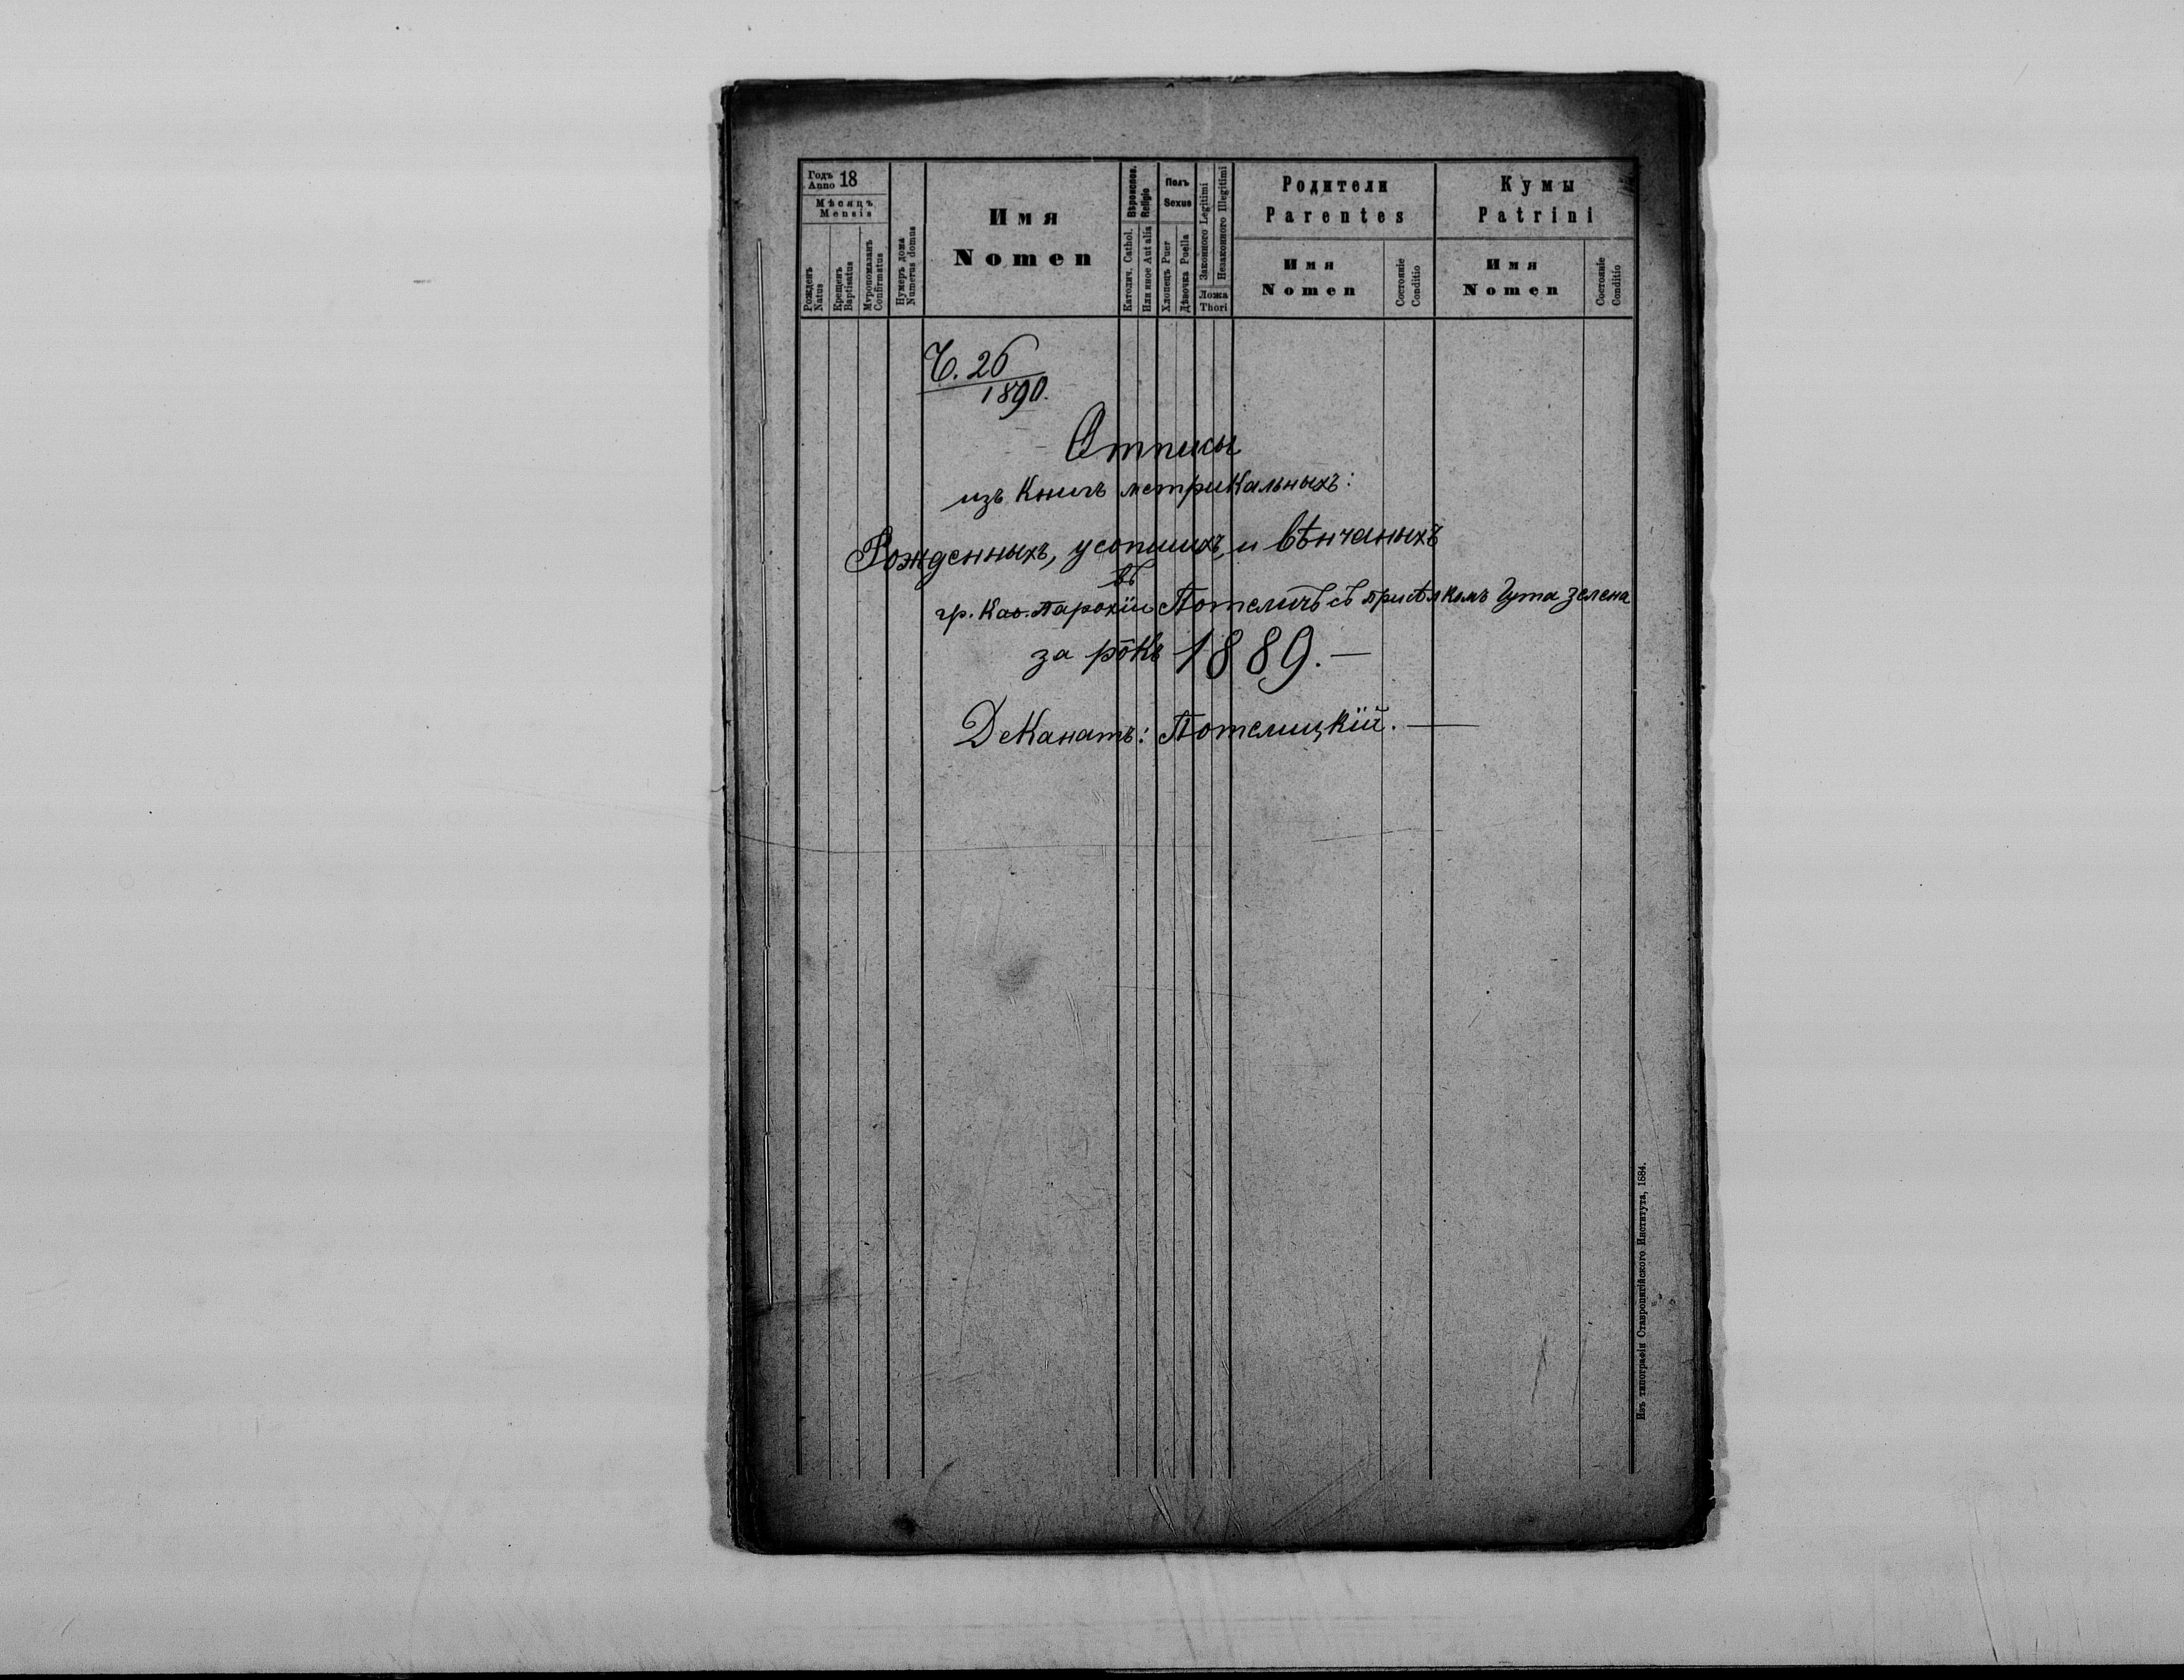 Годъ
Anno 18
Мѣсяцъ
Mensis
Рожденъ
Natus
Крещенъ
Baptisatus
Мѵропомазанъ
Confirmatus
Нумеръ дома
Numerus domus
Имя
Nomen
Вѣроиспов.
Religio
Католич. Cathol.
Или иное Aut alia
Полъ
Sexus
Хлопецъ Puer
Дѣвочка Puella
Законного Legitimi
Незаконного Illegitimi
Ложа
Thori
Родители
Parentes
Имя
Nomen
Состоянiе
Conditio
Кумы
Patrini
Имя
Nomen
Состоянiе
Conditio
Ч. 26
1890.
Отписы
изъ Книгъ метрикальныхъ:
Рожденныхъ, усопшихъ, и вѣнчаныхъ
въ
гр. Каѳ. Парохіи Потеличъ съ присѣлкомъ Гута зелена
за рôкъ 1889.—
Деканатъ: Потелицкій.—
Изъ типографiи Ставропигiйского Института, 1884.